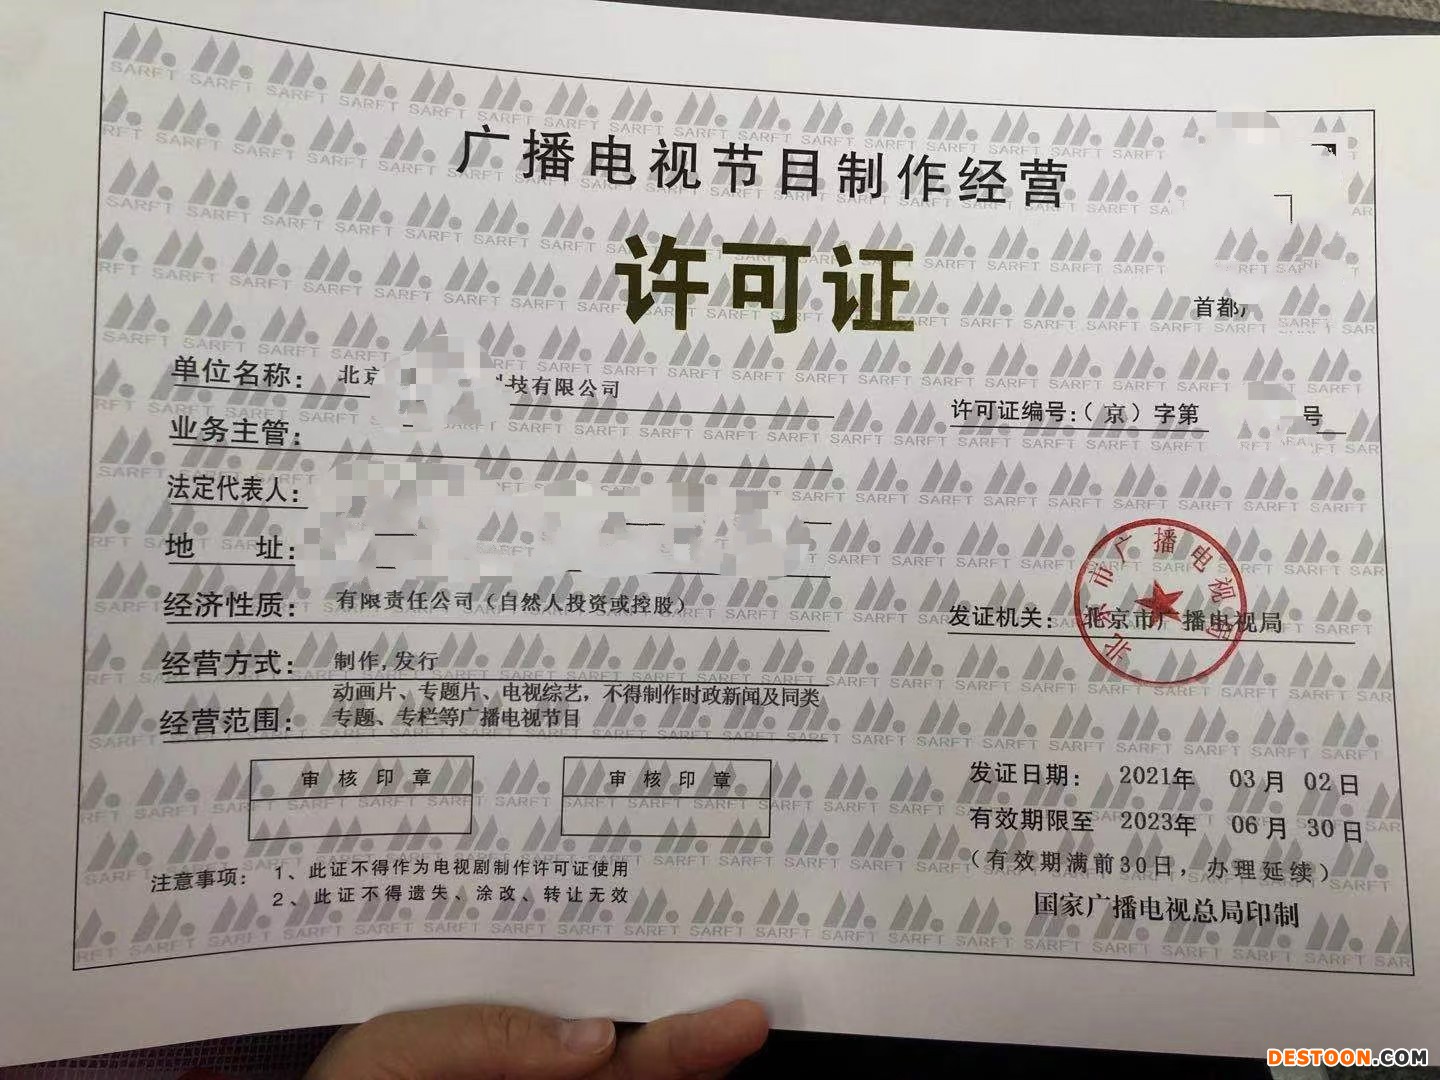 广播电视节目制作经营
许可证
首都
单位名称： 北京 科技有限公司
许可证编号：（京）字第 号
业务主管：
法定代表人：
地 址：
经济性质： 有限责任公司（自然人投资或控股）
发证机关： 北京市广播电视局
北京市广播电视局
经营方式： 制作,发行
经营范围： 动画片、专题片、电视综艺，不得制作时政新闻及同类
专题、专栏等广播电视节目
审核印章
审核印章
发证日期： 2021年 03月 02日
有效期限至 2023年 06月 30日
（有效期满前30日，办理延续）
国家广播电视总局印制
注意事项： 1、此证不得作为电视剧制作许可证使用
2、此证不得遗失、涂改、转让无效
SARFT
DESTOON.COM